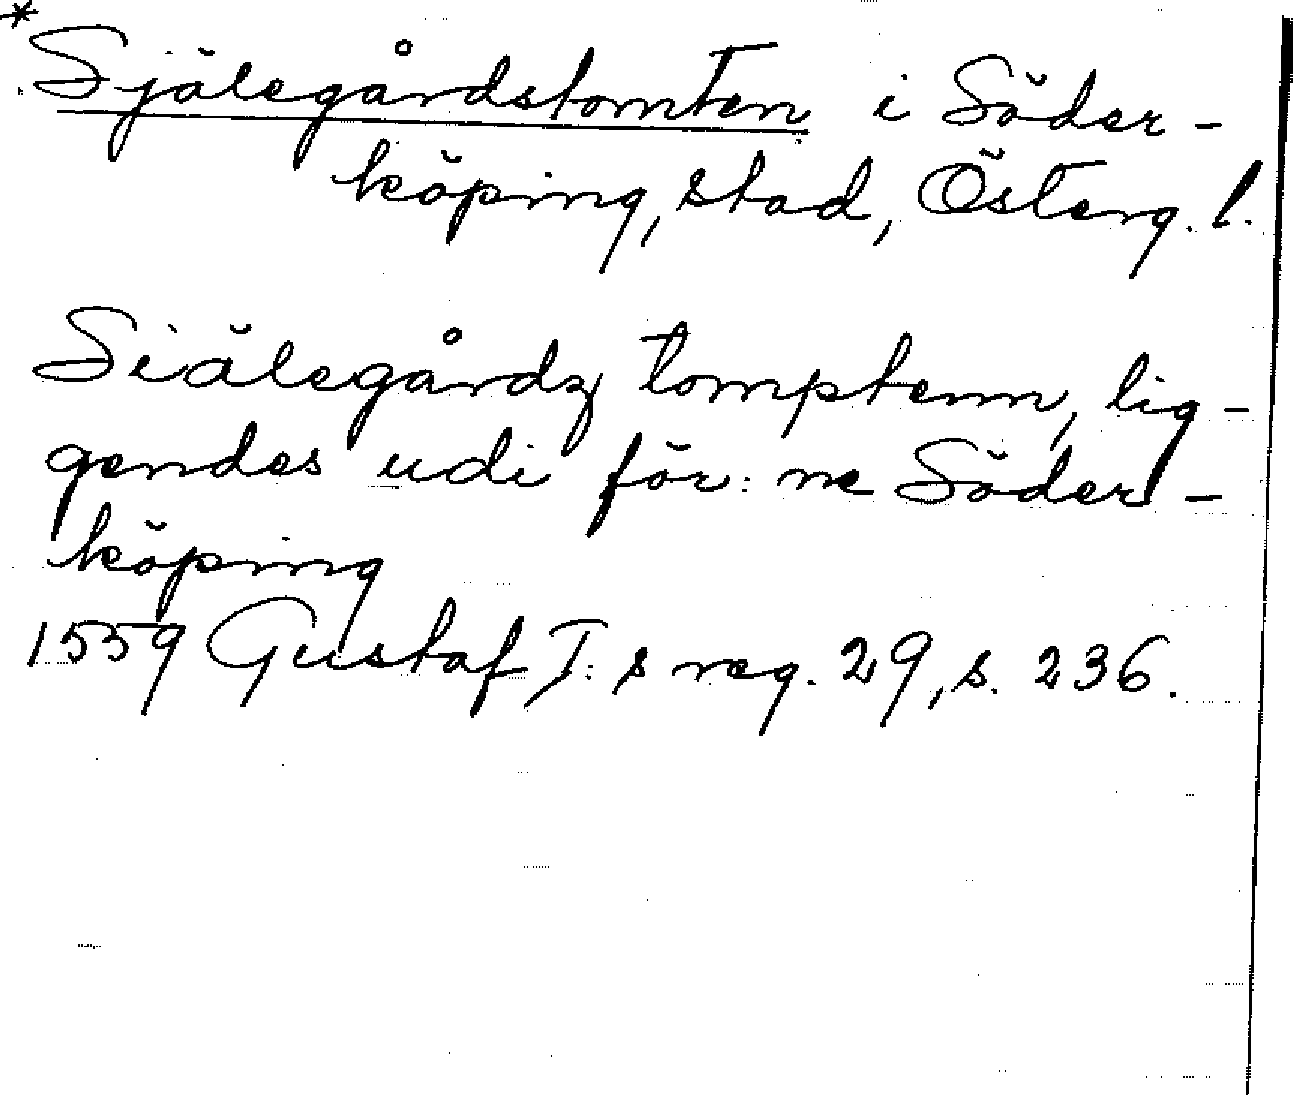 *
Själegårdstomten i Söder-
köping, stad, Österg. l.
Siälegårdz tomptenn, lig-
gendes udi för: ne Söder-
köping
1559 Gustaf I: s reg. 29, s. 236.